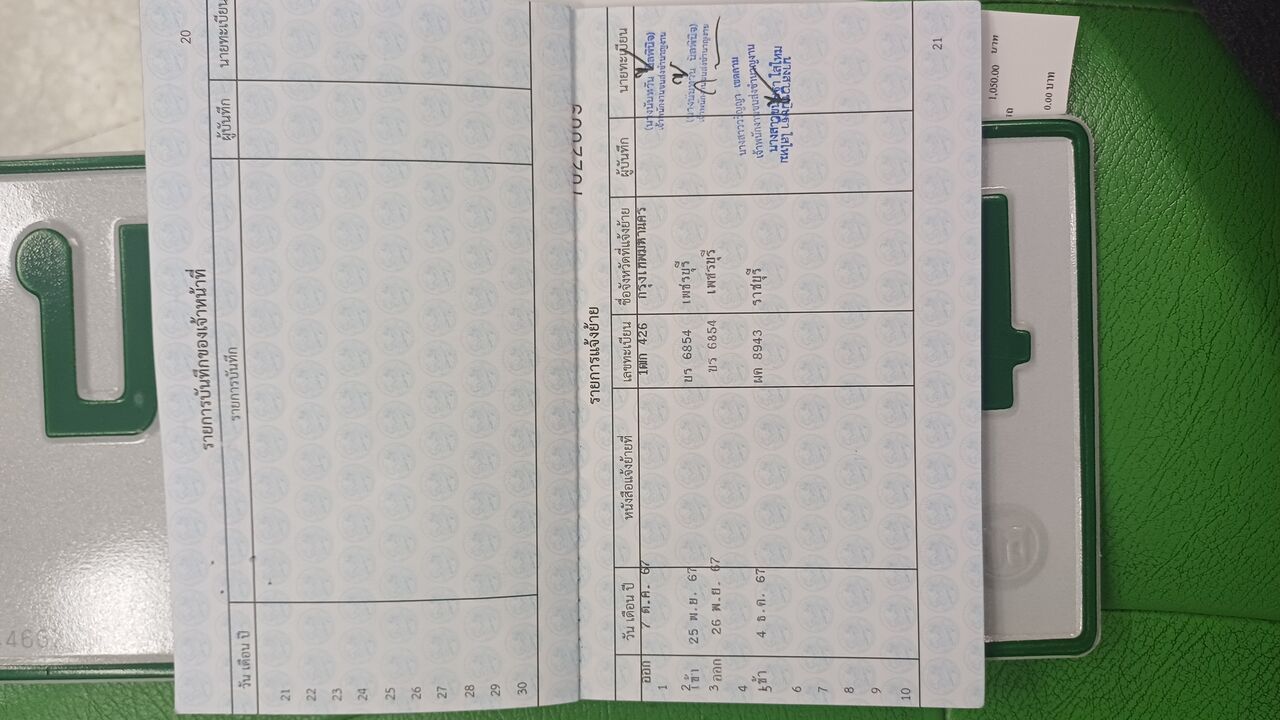 20
รายการบันทึกของเจ้าหน้าที่
วัน เดือน ปี รายการบันทึก ผู้บันทึก นายทะเบียน
21
22
23
24
25
26
27
28
29
30
รายการแจ้งย้าย
วัน เดือน ปี หนังสือแจ้งย้ายที่ เลขทะเบียน ชื่อจังหวัดที่แจ้งย้าย ผู้บันทึก นายทะเบียน
ออก 7 ต.ค. 67 426 กรุงเทพมหานคร
1
2 เข้า 25 พ.ย. 67 ขร 6854 เพชรบุรี
3 ออก 26 พ.ย. 67 ขร 6854 เพชรบุรี
4
5 เข้า 4 ธ.ค. 67 ผด 8943 ราชบุรี
6
7
8
9
10
เจ้าพนักงานขนส่งชำนาญงาน
21
1,050.00 บาท
0.00 บาท